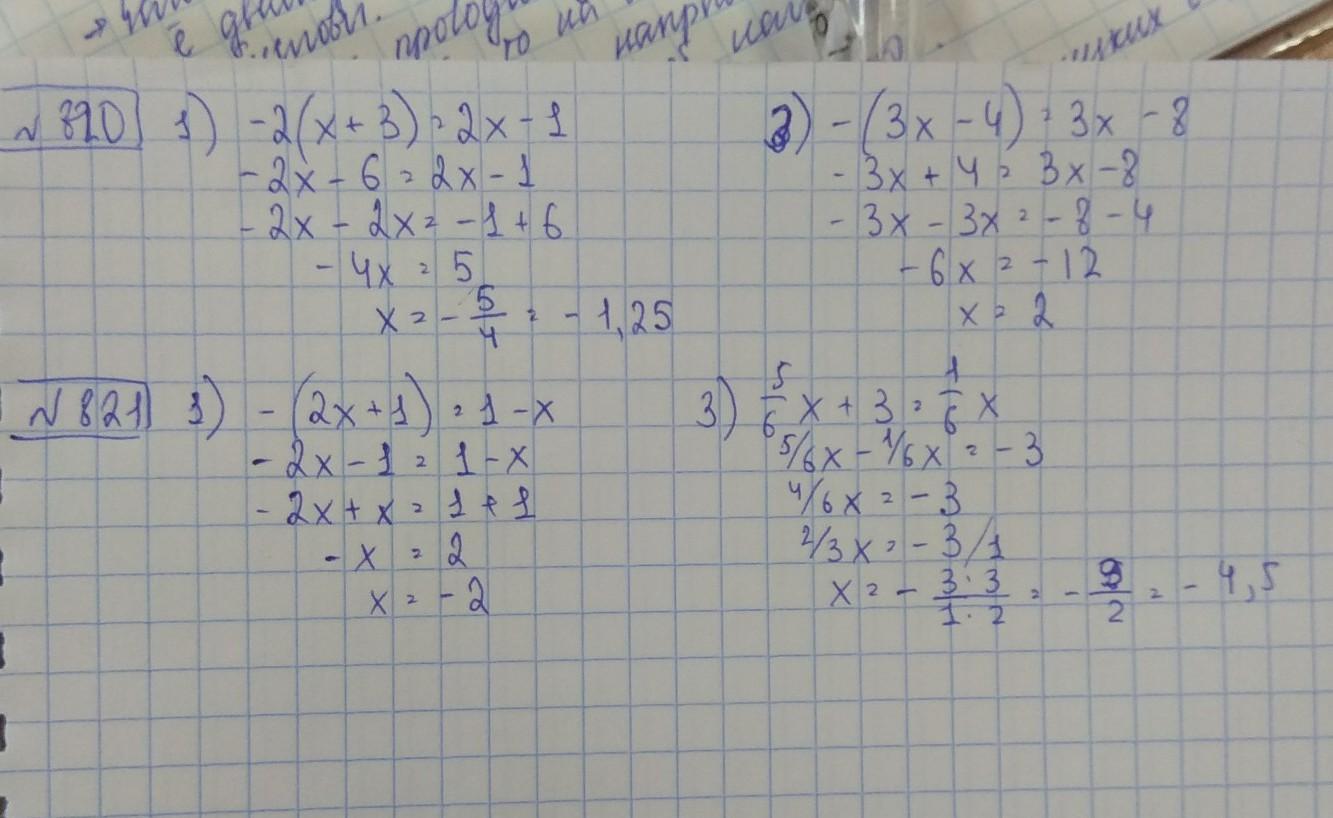 є
на
№ 820 1) -2(x+3)=2x-1
-2x-6=2x-1
-2x-2x=-1+6
-4x=5
x=-5/4=-1,25
2) -(3x-4)=3x-8
-3x+4=3x-8
-3x-3x=-8-4
-6x=-12
x=2
№ 821 1) -(2x+1)=1-x
-2x-1=1-x
-2x+x=1+1
-x=2
x=-2
3) 5/6x+3=1/6x
5/6x-1/6x=-3
4/6x=-3
2/3x=-3/1
x=-3·3/1·2=-9/2=-4,5